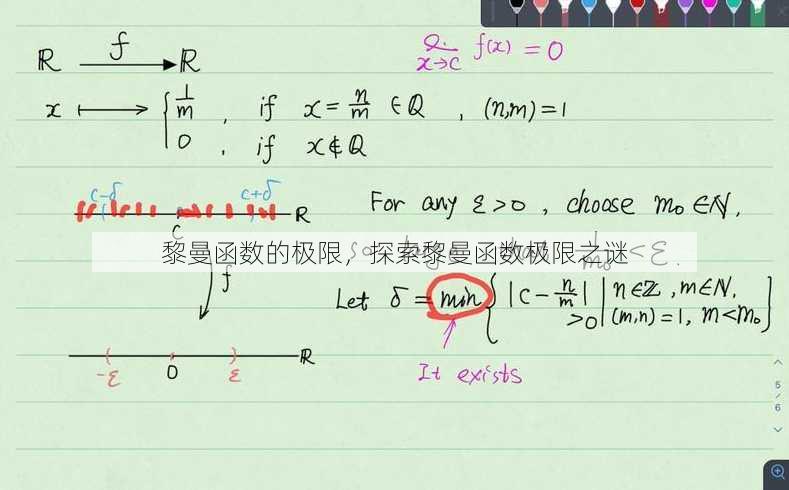 ℝ f ℝ
lim x→c f(x) = 0
x ⟼ { 1/m , if x = n/m ∈ ℚ , (n,m)=1
0 , if x ∉ ℚ
c-δ c+δ
ℝ
c
For any ε>0 , choose m₀ ∈ ℕ,
黎曼函数的极限，探索黎曼函数极限之谜
1/m₀ < ε.
f
Let δ = min { |c - n/m| >0 | n∈ℤ, m∈ℕ, (m,n)=1, m<m₀ }
-ε 0 ε ℝ
It exists
5/6